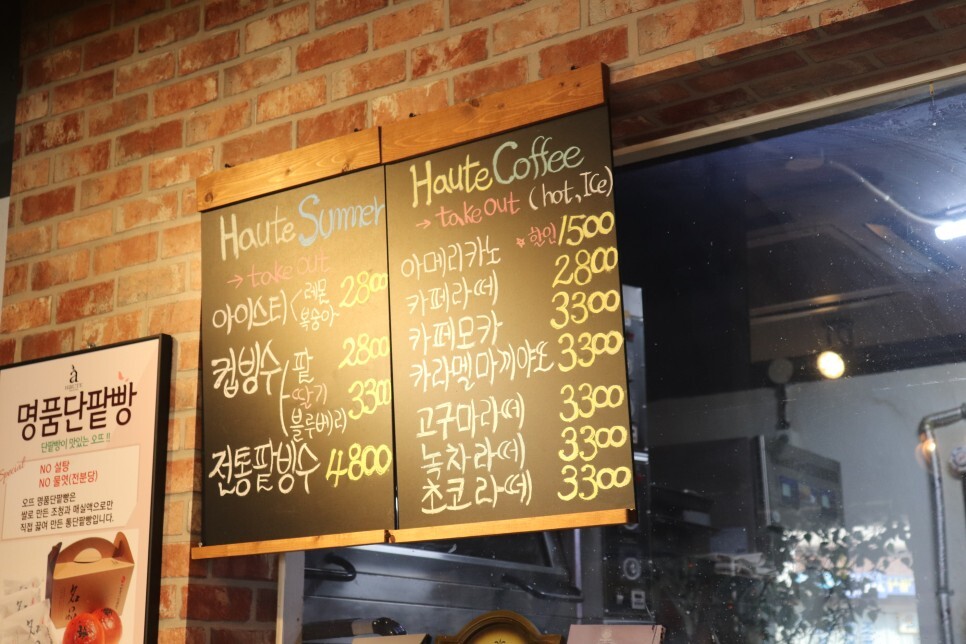 Haute Summer
→ take out
아이스티 레몬 2800
복숭아
컵빙수 팥 2800
딸기 3300
블루베리
전통팥빙수 4800
Haute Coffee
→ take out (hot, Ice)
아메리카노 할인 1500
카페라떼 2800
카페모카 3300
카라멜마끼야또 3300
고구마라떼 3300
녹차라떼 3300
초코라떼 3300
à
명품단팥빵
단팥빵이 맛있는 오뜨 !!
Special
NO 설탕
NO 물엿(전분당)
오뜨 명품단팥빵은
쌀로 만든 조청과 매실액으로만
직접 끓여 만든 통단팥빵입니다.